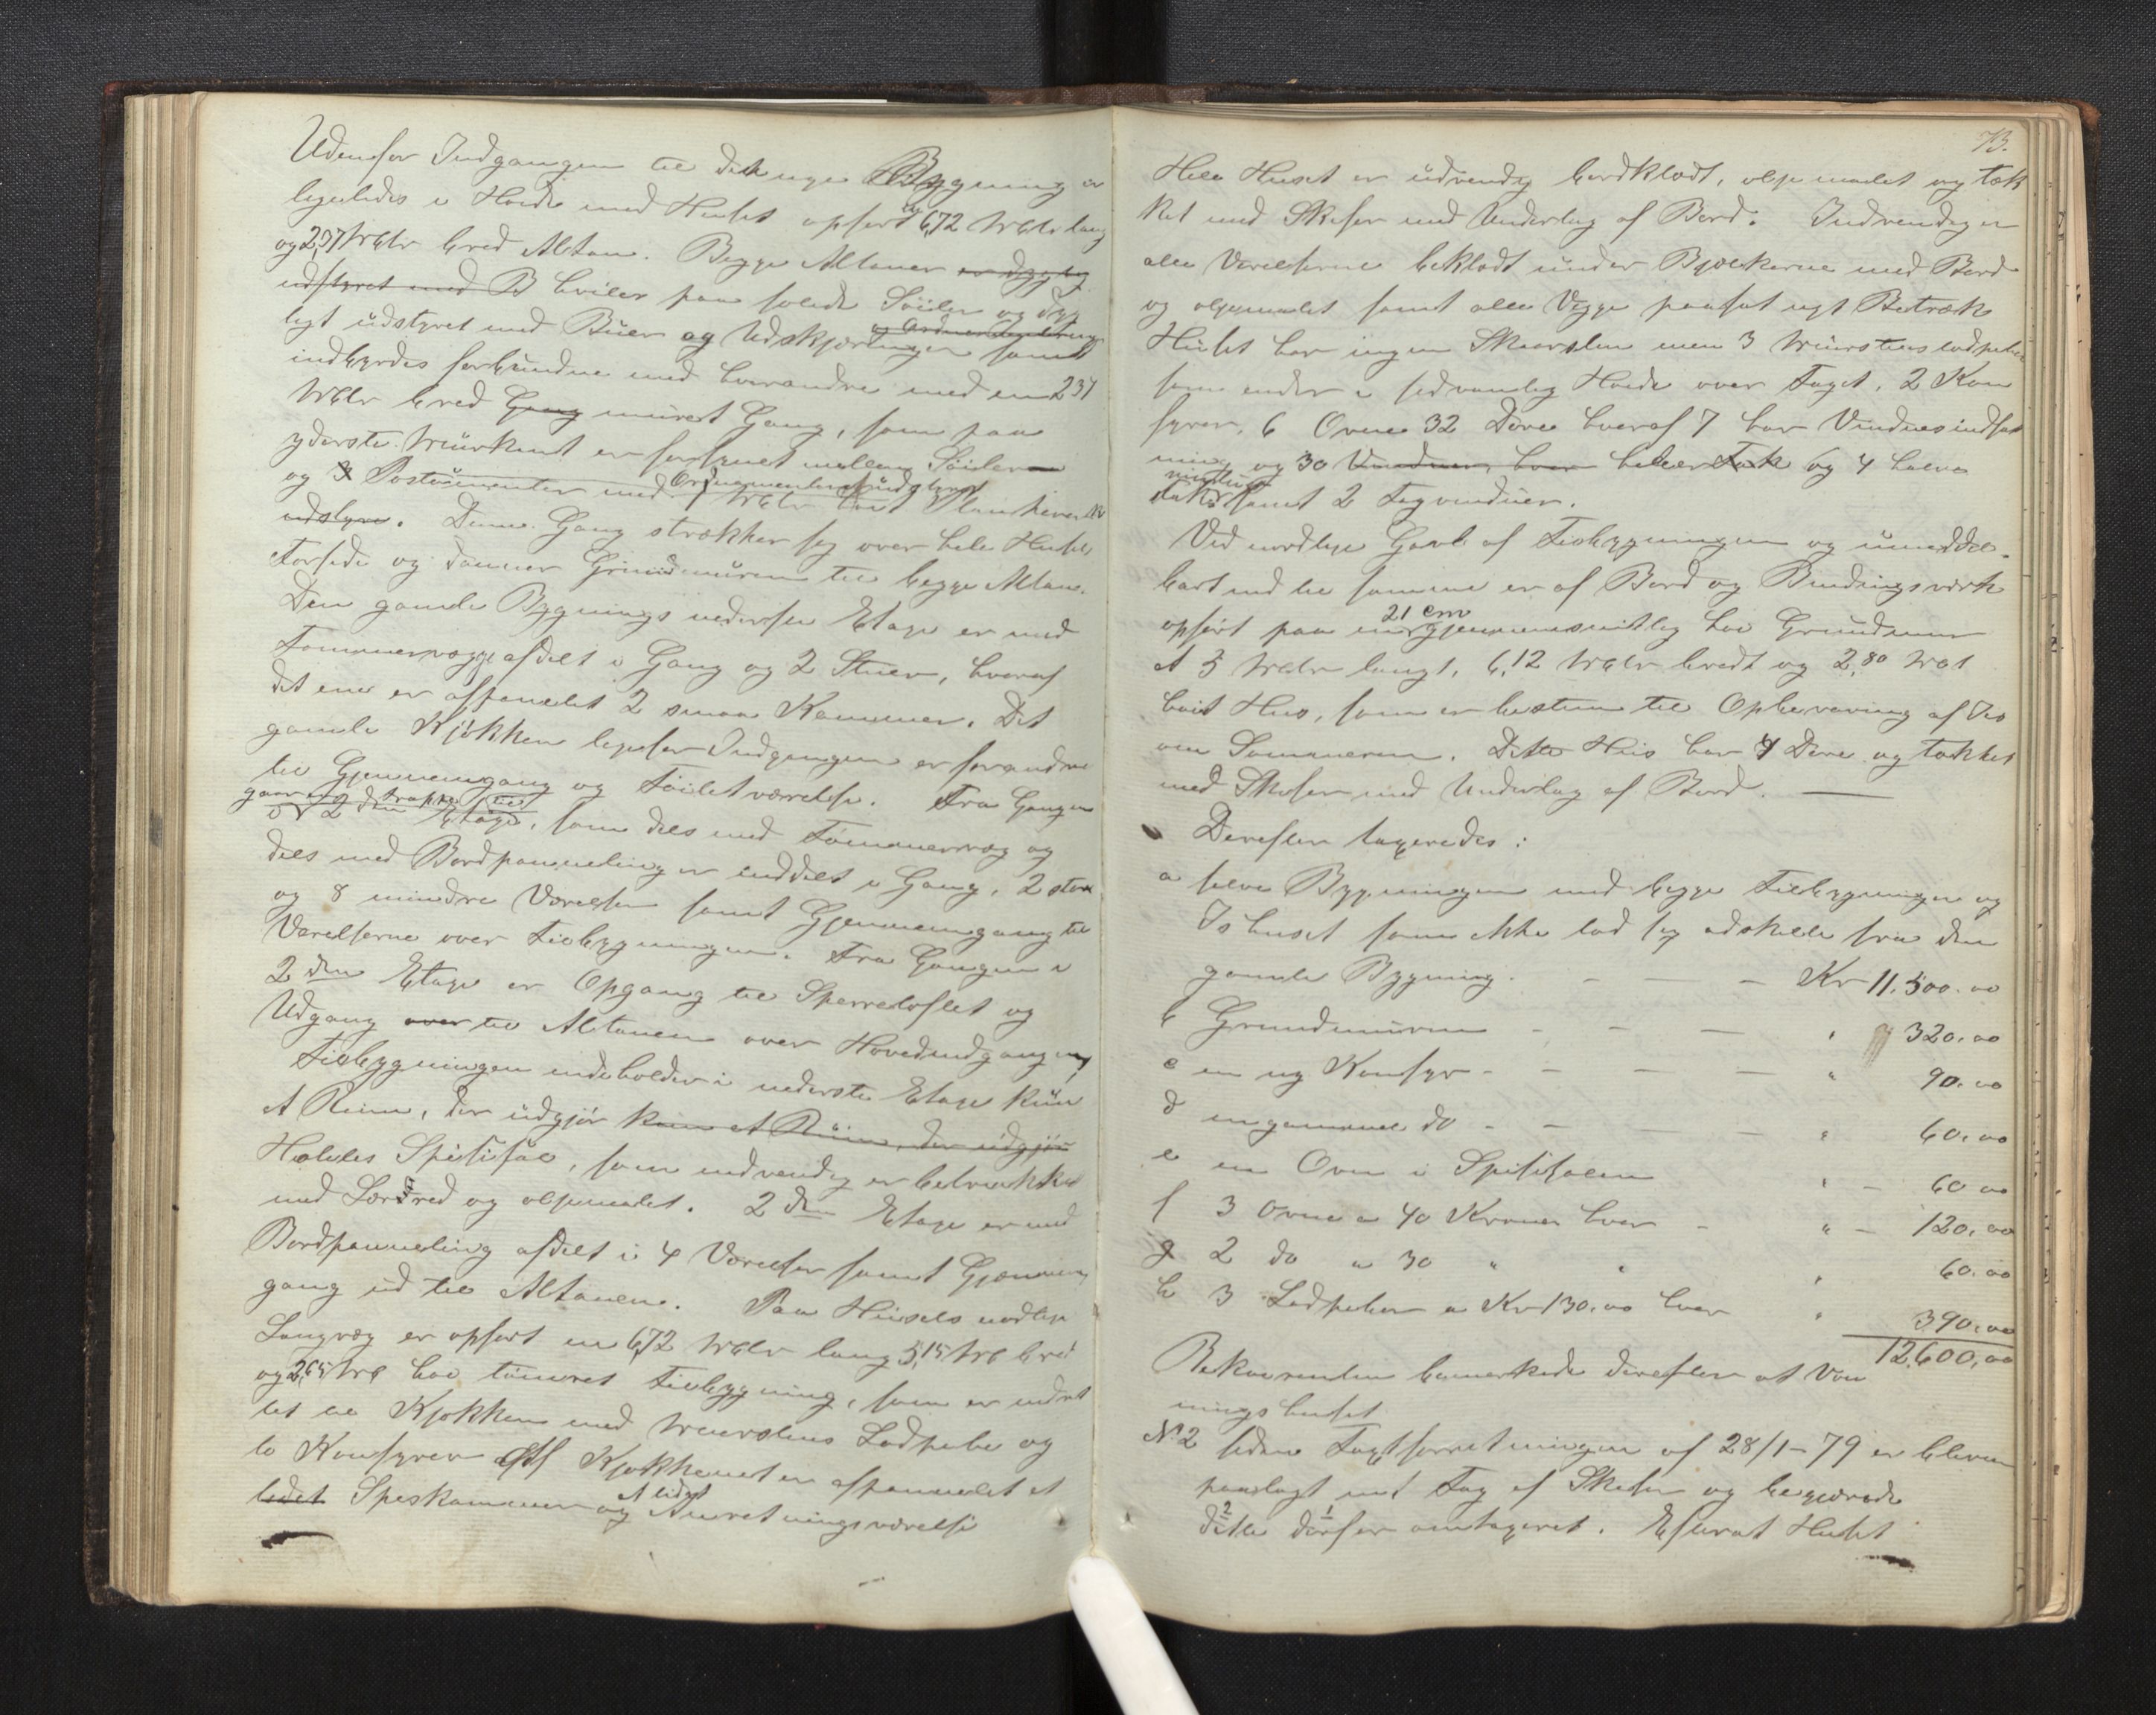 Udenfor Indgangen til den nye Bygning er
ligeledes i Høide med Huset opført en 6,72 Metr lang
og 2,37 Metr bred Altan. Begge Altaner er dygtig
udstyret med B hviler paa solide Søiler og dyg
ligt udstyret med Buer og Udskjæringer samt
indbyrdes forbundne med hverandre med en 2,37
Metr bred Gang muret Gang, som paa
yderste Murkant er forsynet mellem Søilerne
og Postumenter med 1 Metr høit Stankiverk
Ornamenter udstyret
udstyre. Denne Gang strækker sig over hele Husets
Forside og danner Grundmuren til begge Altane.
Den gamle Bygnings nederste Etage er med
Tømmervægge afdelt i Gang og 2 Stuer, hvoraf
det ene er afpanelet 2 smaa Kammer. Det
gamle Kjøkken ligefor Indgangen er forandret
til Gjennemgang og Toiletværelse. Fra Gangen
gaar en Trappe til
2den Etage, som dels med Tømmervæg og
dels med Bordpanneling er inddelt i Gang, 2 store
og 8 mindre Værelser samt Gjennemgang til
Værelserne over Tilbygningen. Fra Gangen i
2den Etage er Opgang til Sperreloftet og
Udgang over til Altanen over Hovedindgangen
Tilbygningen indeholder i nederste Etage kun
et Rum, der udgjør kun et Rum, der udgjør
Hotelets Spisesal, som indvendig er betrukket
med Lærred og oljemalet. 2den Etage er med
Bordpanneling afdelt i 4 Værelser samt Gjennem
gang ud til Altanen. Paa Husets nordlige
Langvæg er opført en 6,72 Metr lang 5,15 Met bred
og 2,65 Met høi tømret Tilbygning, som er indret
tet til Kjøkken med Murstens Ladpibe og
to Komfyrer Af Kjøkkenet er afpannelet et
lidet Spiskammer og et lidet Anretningsværelse
73.
Hele Huset er udvendig bordklædt, olje malet og tæk
ket med Skifer med Underlag af Bord. Indvendig er
alle Værelserne beklædt under Bjælkerne med Bord
og oljemalet samt alle Vægge paasat nyt Betræk
Huset har ingen Skorsten men 3 Murstens ladpiber
som ender i sædvanlig Høide over Taget, 2 Kom
fyrer, 6 Ovne 32 Døre hvoraf 7 har Vinduesindfat
ning og 30 Vinduer, hver heleer Fak og 4 halve
Fak samt 2 Tagvinduer.
Ved nordlige Gavl af Tilbygningen og umiddel-
bart ind til samme er af Bord og Bindingsværk
opført paa en 21 cm gjennemsnitlig høi Grundmur
et 5 Metr langt, 6,12 Metr bredt og 2,80 Met
høit Hus, som er bestemt til Opbevaring af Is
om Sommeren. Dette Hus har 4 Døre og tækket
med Skifer med Underlag af Bord.
Derefter taxeredes:
a selve Bygningen med begge Tilbygninger og
Ishuset som ikke lod sig adskille fra den
gamle Bygning. - - - Kr 11.500.00
b Grundmuren - - - " 320.00
c en ny Komfyr - - - - " 90.00
d en gammel do - - - - " 60.00
e en Ovn i Spisesalen " - 60 00
f 3 Ovne a 40 Kroner hver - " - 120.00
g 2 do a 30 " " " 60.00
h 3 Ladpiber a Kr 130.00 hver " 390.00
12,600,00
Rekvirenten bemærkede derefter at Vaa
ningshuset
No 2 siden Taxtforretningen af 28/1-79 er bleven
paalagt med Tag af Skifer og begjærede
2 1
dette derfor omtaxeret. Efterat Huset